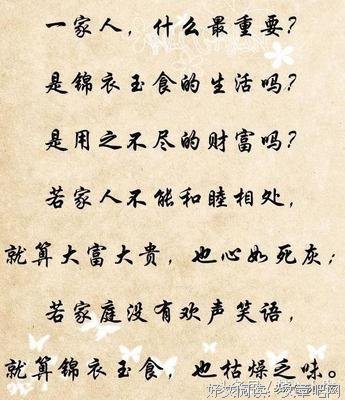 一家人，什么最重要？
是锦衣玉食的生活吗？
是用之不尽的财富吗？
若家人不能和睦相处，
就算大富大贵，也心如死灰；
若家庭没有欢声笑语，
就算锦衣玉食，也枯燥乏味。